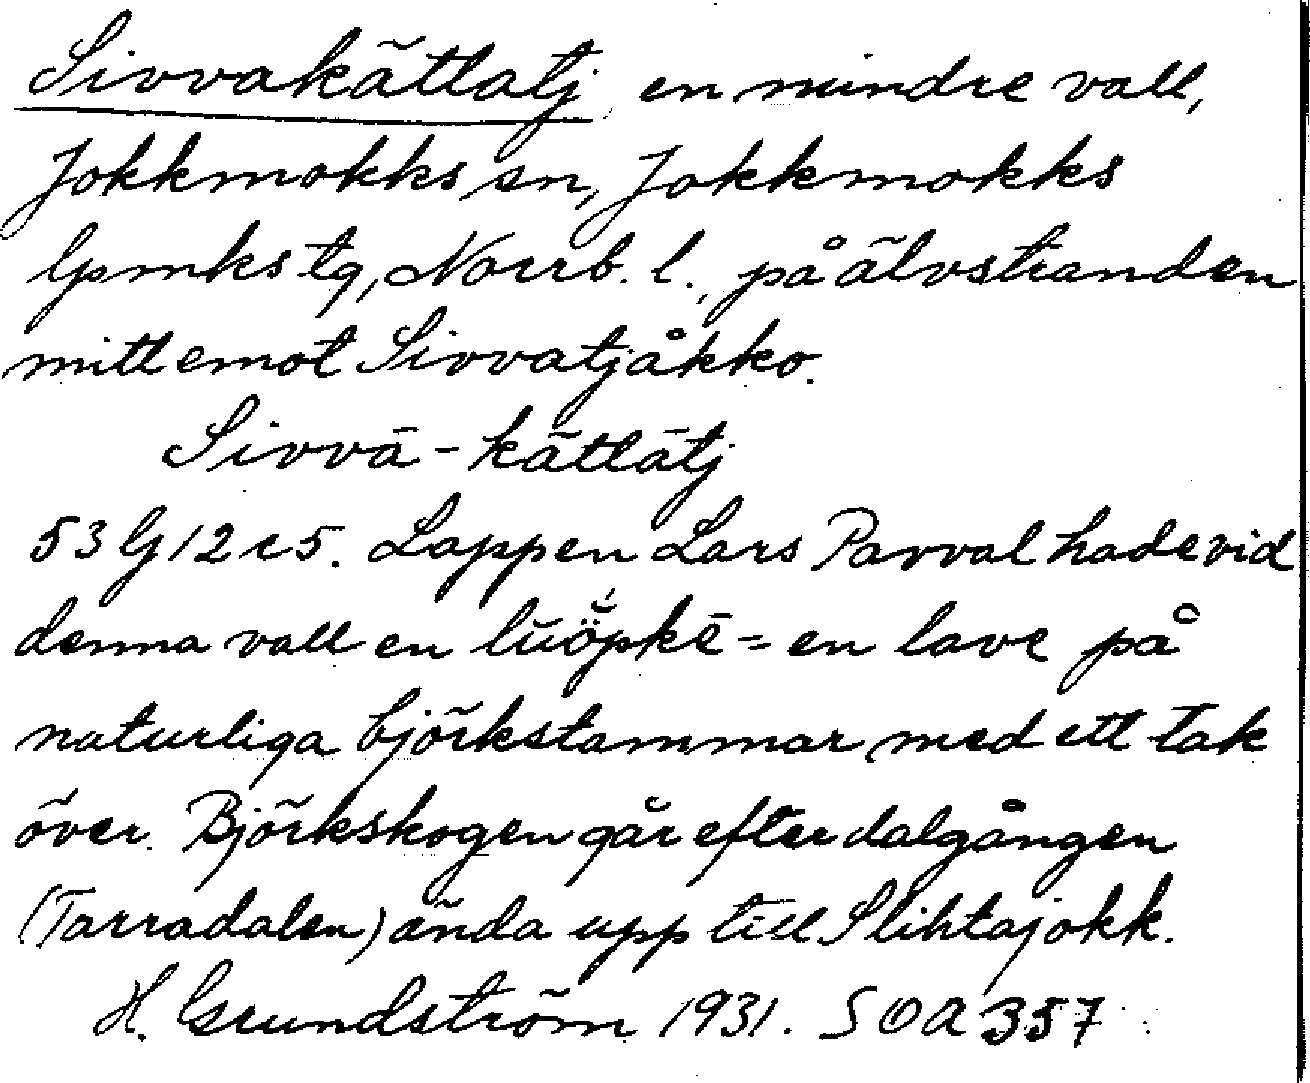 Sivvakättatj en mindre vall,
Jokkmokks sn, Jokkmokks
lpmks tg, Norrb. l., på älvstranden
mitt emot Sivvatjåkko.
Sivvā-kāttātj
53 G 12 c 5. Lappen Lars Parval hade vid
denna vall en = en lave på
naturliga björkstammar med ett tak
över. Björkskogen går efter dalgången
(Tarradalen) ända upp till Slihtajokk.
H. Grundström 1931. SOA 357